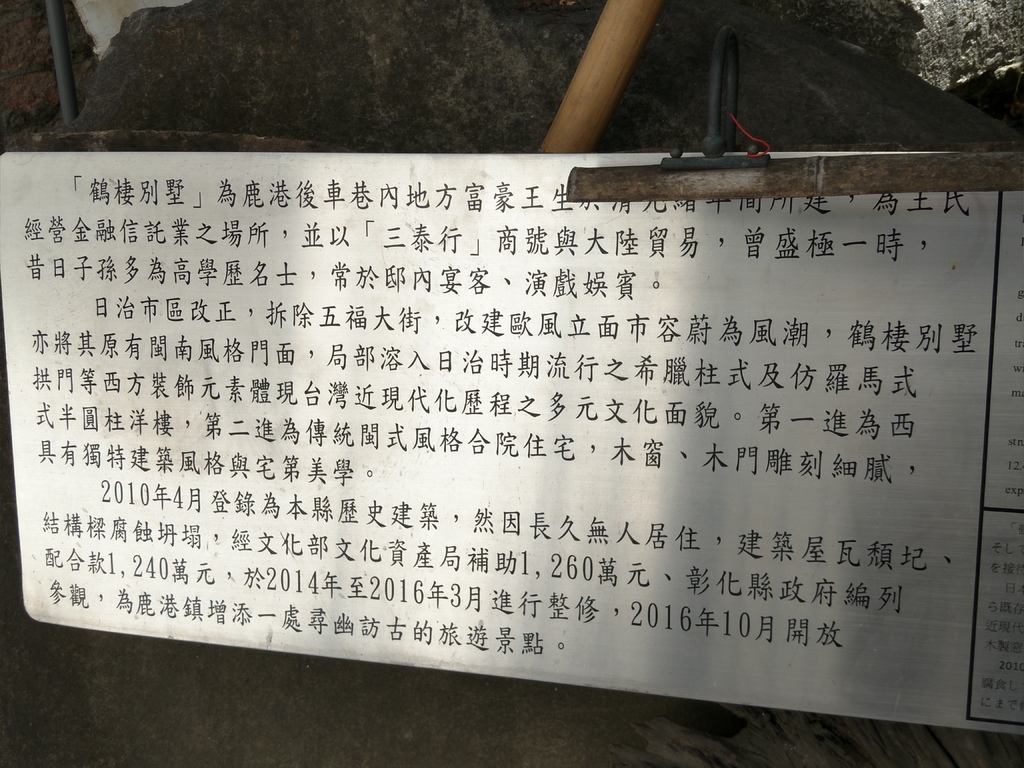 「鶴棲別墅」為鹿港後車巷內地方富豪王生於清光緒年間所建，為王氏
經營金融信託業之場所，並以「三泰行」商號與大陸貿易，曾盛極一時，
昔日子孫多為高學歷名士，常於邸內宴客、演戲娛賓。
日治市區改正，拆除五福大街，改建歐風立面市容蔚為風潮，鶴棲別墅
亦將其原有閩南風格門面，局部溶入日治時期流行之希臘柱式及仿羅馬式
拱門等西方裝飾元素體現台灣近現代化歷程之多元文化面貌。第一進為西
式半圓柱洋樓，第二進為傳統閩式風格合院住宅，木窗、木門雕刻細膩，
具有獨特建築風格與宅第美學。
2010年4月登錄為本縣歷史建築，然因長久無人居住，建築屋瓦頹圮、
結構樑腐蝕坍塌，經文化部文化資產局補助1,260萬元、彰化縣政府編列
配合款1,240萬元，於2014年至2016年3月進行整修，2016年10月開放
參觀，為鹿港鎮增添一處尋幽訪古的旅遊景點。
stn
12.
exp
そして
を接
日本
ら既存
近現代
木製窓
2010
腐食し
にまで